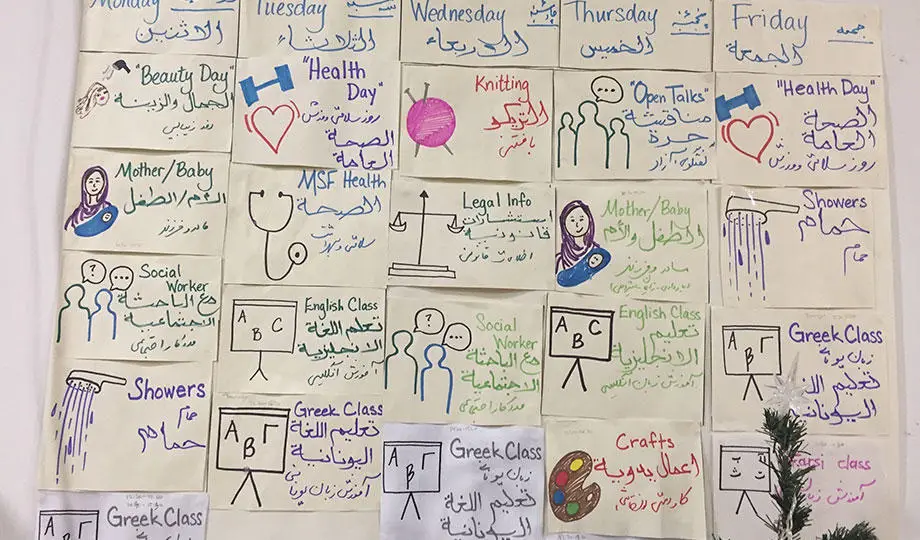 Monday
الاثنين
Tuesday
الثلاثاء
Wednesday
الاربعاء
Thursday
پنجشنبه
الخميس
Friday
جمعه
الجمعة
"Beauty Day"
الجمال والزينة
"Health
Day"
روز سلامتی و ورزش
الصحة
العامة
Knitting
التريكو
بافتنی
"Open Talks"
مناقشة
حرة
گفتگوی آزاد
"Health Day"
الصحة
العامة
روز سلامتی و ورزش
Mother/Baby
الأم/الطفل
مادر و فرزند
MSF Health
الصحة
Legal Info
استشارات
قانونية
اطلاعات قانونی
Mother/Baby
الطفل والأم
مادر و فرزند
Showers
حمام
حمام
?
...
Social
Worker
مع الباحثة
الاجتماعية
مددکار اجتماعی
A
B C
English Class
تعليم اللغة
الانجليزية
آموزش انگلیسی
?
...
Social
Worker
مع الباحثة
الاجتماعية
مددکار اجتماعی
A B C
English Class
تعليم
الانجليزية
آموزش زبان انگلسی
A Γ
B
Greek Class
زبان یونانی
تعليم اللغة
اليونانية
Showers
حمام
حمام
A Γ
B
Greek Class
تعليم اللغة
اليونانية
آموزش زبان یونانی
A Γ
B
Greek Class
زبان یونانی
تعليم اللغة
اليونانية
Crafts
اعمال يدوية
کاردستی
class
آموزش زبان
A Γ
B
Greek Class